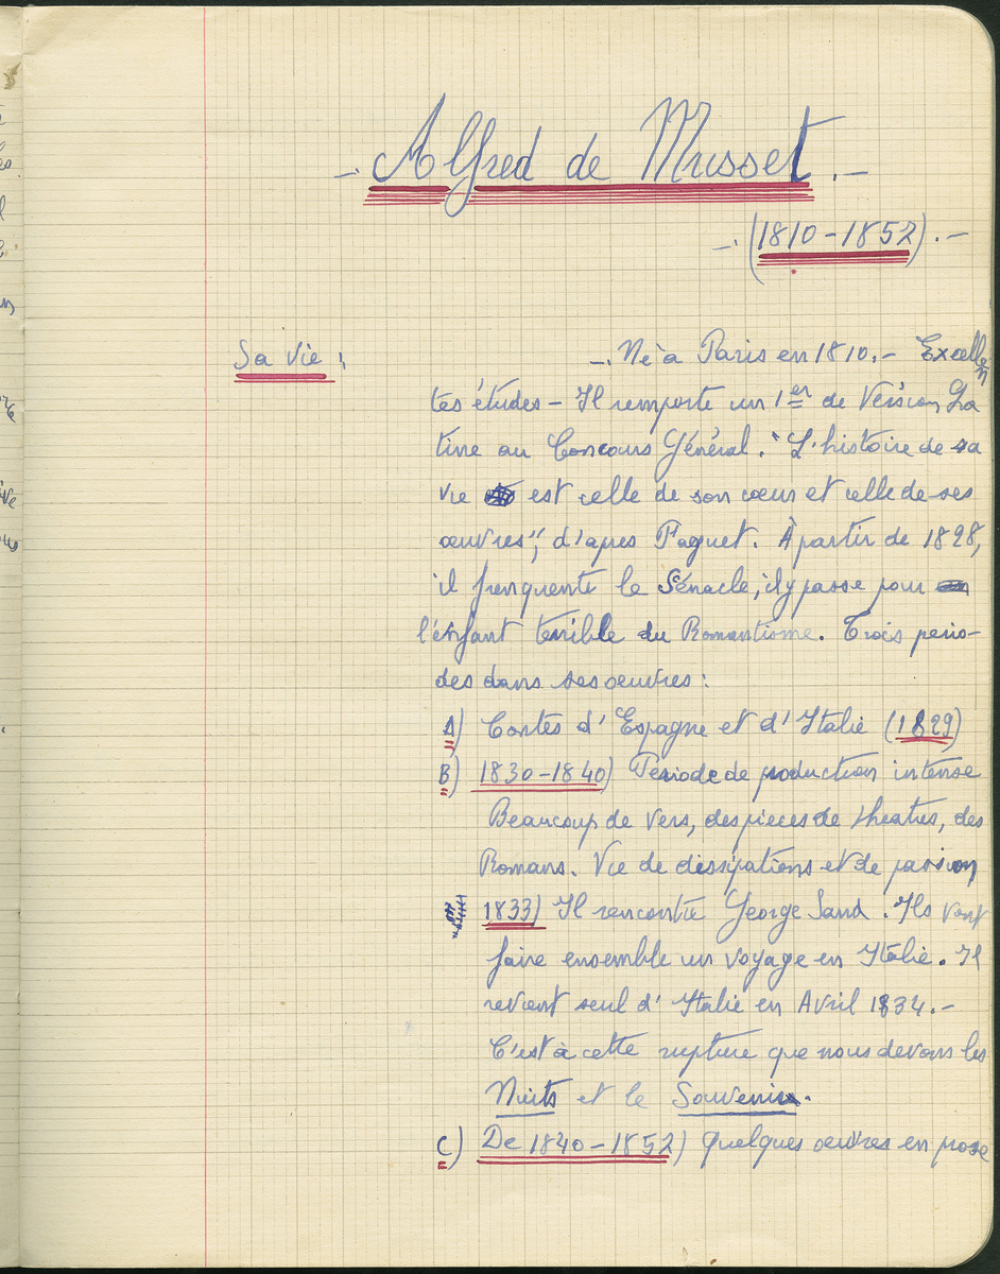 -. Alfred de Musset .-
-. (1810-1852) .-
Sa Vie : -. Né à Paris en 1810.- Excellen
tes études - Il remporte un 1er de Version La
tine au Concours Général. "L'histoire de sa
vie est celle de son cœur et celle de ses
œuvres", d'après Faguet. À partir de 1828,
il frenquente le Sénacle, il y passe pour
l'enfant terrible du Romantisme. Trois perio-
des dans ses oeuvres :
A) Contes d'Espagne et d'Italie (1829)
B) 1830-1840) Periode de production intense
Beaucoup de vers, des pieces de theatres, des
Romans. Vie de dissipations et de passion
1833) Il rencontre George Sand. Ils vont
faire ensemble un voyage en Italie. Il
revient seul d'Italie en Avril 1834.-
C'est à cette rupture que nous devons les
Nuits et le Souvenir.
C) De 1840-1852) Quelques oeuvres en prose